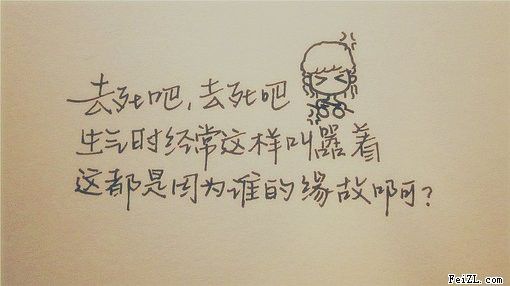 去死吧,去死吧
生气时经常这样叫嚣着
这都是因为谁的缘故啊?
FeiZL.com